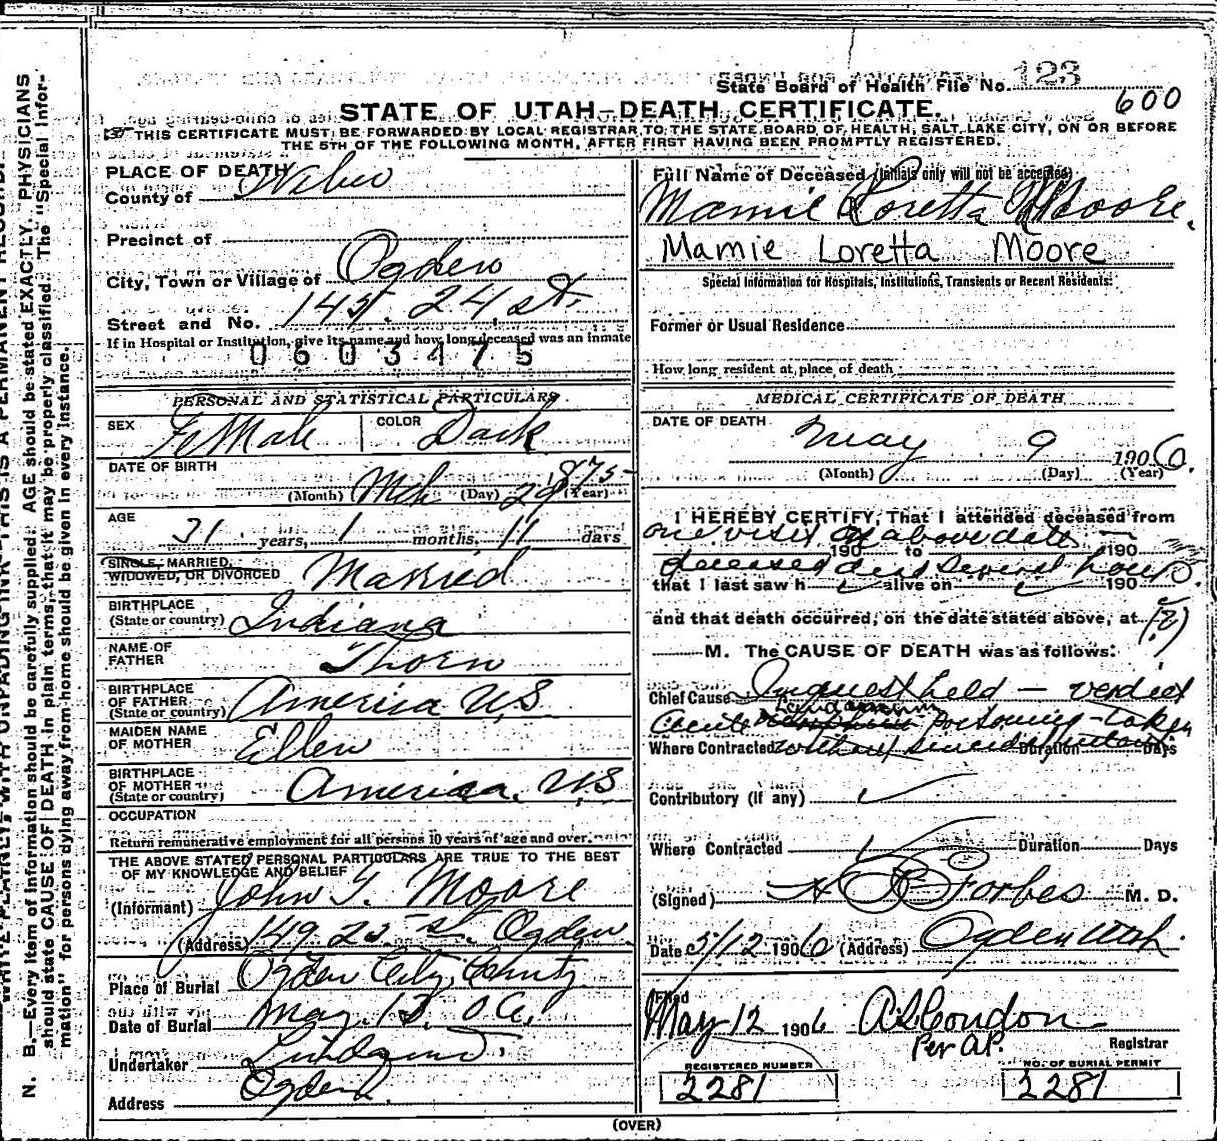 State Board of Health File No. 123
600
STATE OF UTAH—DEATH CERTIFICATE.
THIS CERTIFICATE MUST BE FORWARDED BY LOCAL REGISTRAR TO THE STATE BOARD OF HEALTH, SALT LAKE CITY, ON OR BEFORE
THE 5TH OF THE FOLLOWING MONTH, AFTER FIRST HAVING BEEN PROMPTLY REGISTERED.
PLACE OF DEATH
County of Weber
Precinct of
City, Town or Village of Ogden
Street and No. 24 st.
If in Hospital or Institution, give its name and how long deceased was an inmate
0603475
PERSONAL AND STATISTICAL PARTICULARS.
SEX FeMale COLOR Dark
DATE OF BIRTH
(Month) Mch (Day) 29 (Year) 1875
AGE
31 years, 1 months, 11 days
SINGLE, MARRIED,
WIDOWED, OR DIVORCED Married
BIRTHPLACE
(State or country) Indiana
NAME OF
FATHER Thorn
BIRTHPLACE
OF FATHER
(State or country) America U.S
MAIDEN NAME
OF MOTHER Ellen
BIRTHPLACE
OF MOTHER
(State or country) America. U.S
OCCUPATION
Return remunerative employment for all persons 10 years of age and over.
THE ABOVE STATED PERSONAL PARTICULARS ARE TRUE TO THE BEST
OF MY KNOWLEDGE AND BELIEF
(Informant) John T. Moore
(Address) 149. st. Ogden.
Place of Burial Ogden City
Date of Burial May. 06.
Undertaker
Address Ogden
Full Name of Deceased (Initials only will not be accepted)
Mamie Loretta Moore.
Mamie Loretta Moore
Special Information for Hospitals, Institutions, Transients or Recent Residents:
Former or Usual Residence
How long resident at place of death
MEDICAL CERTIFICATE OF DEATH
DATE OF DEATH
May 9 1906.
(Month) (Day) (Year)
I HEREBY CERTIFY, That I attended deceased from
one visit on above date —
190 to 190
deceased dead several hours.
that I last saw h alive on 190
and that death occurred, on the date stated above, at (?)
M. The CAUSE OF DEATH was as follows:
Chief Cause Inquest held — verdict
Acute Laudanum poisoning - taken
Where Contracted Duration Days
Contributory (If any)
Where Contracted Duration Days
(Signed) Forbes M. D.
Date 5/12 1906 (Address) Ogden Utah.
Filed
May 12 1906 Condon
Per A.P. Registrar
REGISTERED NUMBER
2281
NO. OF BURIAL PERMIT
2281
(OVER)
N. B.—Every item of information should be carefully supplied. AGE should be stated EXACTLY. PHYSICIANS
should state CAUSE OF DEATH in plain terms, that it may be properly classified. The "Special Infor-
mation" for persons dying away from home should be given in every instance.